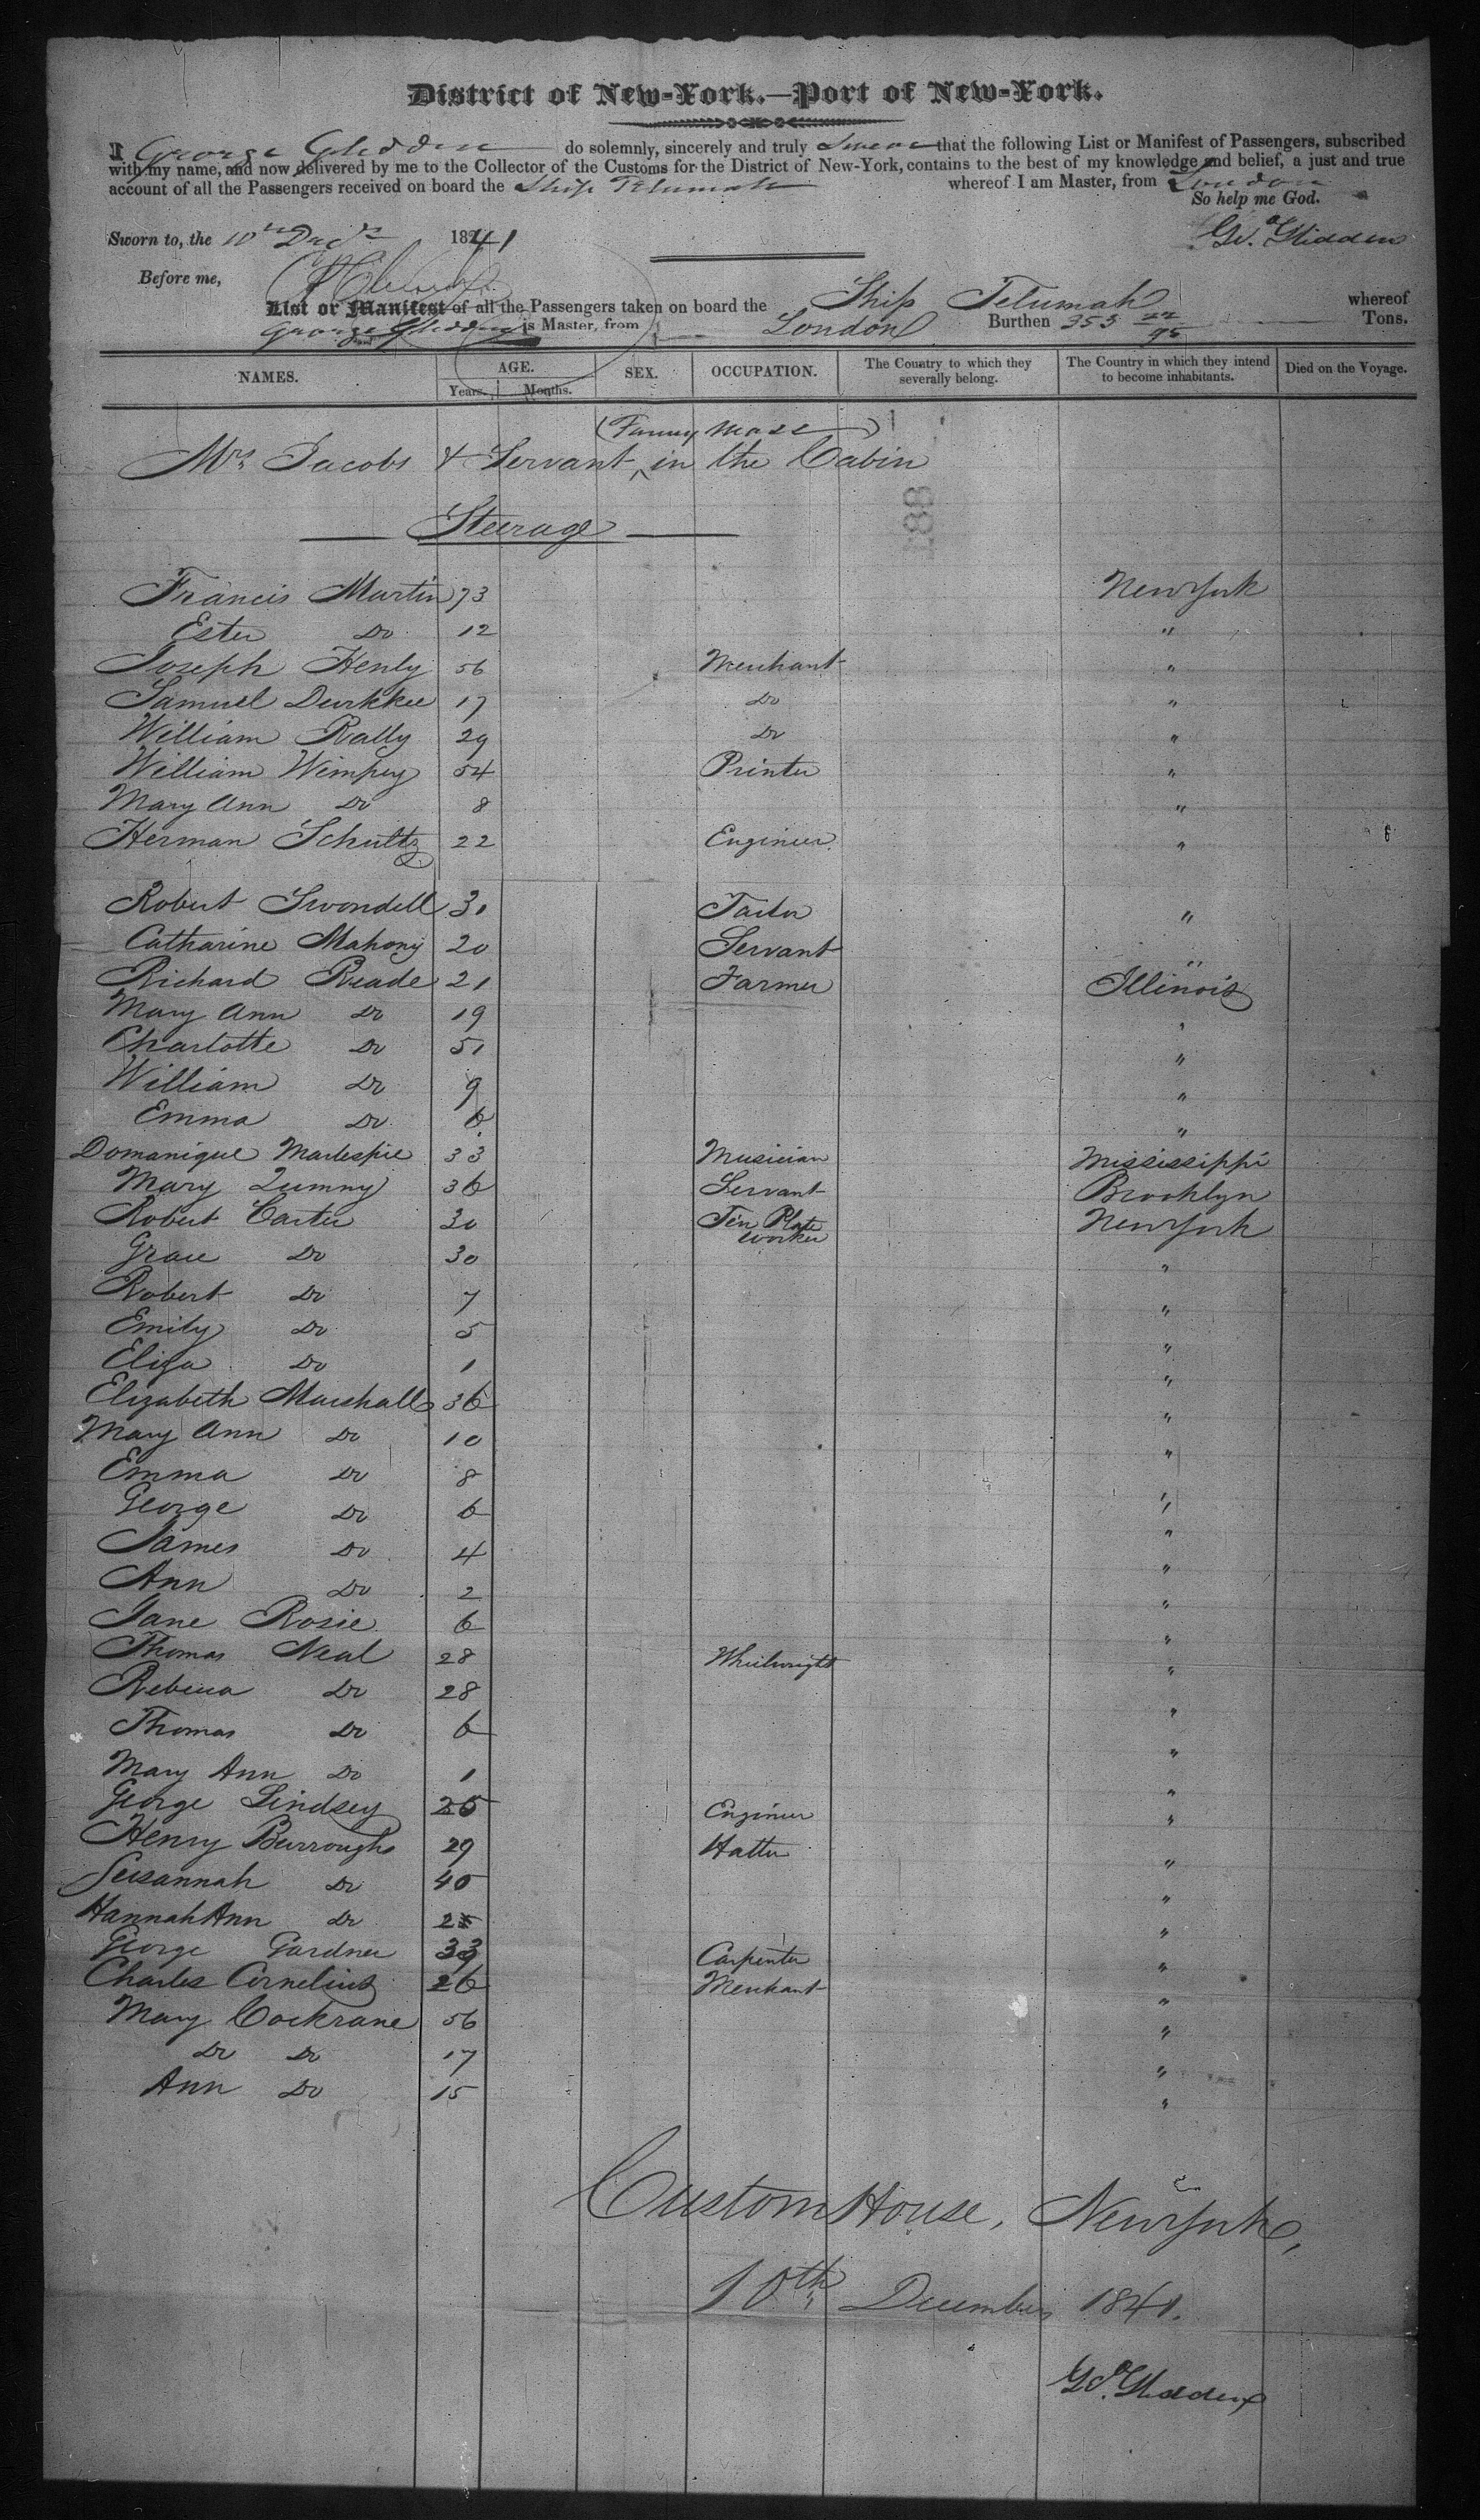 District of New-York.—Port of New-York.
I George Glidden do solemnly, sincerely and truly Swear that the following List or Manifest of Passengers, subscribed
with my name, and now delivered by me to the Collector of the Customs for the District of New-York, contains to the best of my knowledge and belief, a just and true
account of all the Passengers received on board the Ship Telumah whereof I am Master, from London
So help me God.
Sworn to, the 10th Decr 1841 Geo. Glidden
Before me,
List or Manifest of all the Passengers taken on board the Ship Telumah whereof
George Glidden is Master, from London Burthen 353 22/95 Tons.
NAMES. AGE. SEX. OCCUPATION. The Country to which they severally belong. The Country in which they intend to become inhabitants. Died on the Voyage.
Years. Months.
(Fanny Mace)
Mrs Jacobs & Servant in the Cabin
188
Steerage
Francis Martin 73 New York
Ester Do 12 "
Joseph Henly 56 Merchant "
Samuel Durkkee 17 Do "
William Rally 29 Do "
William Wimpey 54 Printer "
Mary Ann Do 8 "
Herman Schultz 22 Engineer "
Robert Swondell 31 Tailor "
Catharine Mahony 20 Servant "
Richard Reade 21 Farmer Illinois
Mary Ann Do 19 "
Charlotte Do 51 "
William Do 9 "
Emma Do 6 "
Domanique Marlespie 33 Musician Mississippi
Mary Lumny 36 Servant Brooklyn
Robert Carter 30 Tin Plate worker New York
Grace Do 30 "
Robert Do 7 "
Emily Do 5 "
Eliza Do 1 "
Elizabeth Marshall 36 "
Mary Ann Do 10 "
Emma Do 8 "
George Do 6 "
James Do 4 "
Ann Do 2 "
Jane Rosie 6 "
Thomas Neal 28 Wheelwright "
Rebecca Do 28 "
Thomas Do 6 "
Mary Ann Do 1 "
George Lindsey 25 Engineer "
Henry Burroughs 29 Hatter "
Susannah Do 40 "
Hannah Ann Do "
George Gardner Carpenter "
Charles Cornelius 26 Merchant "
Mary Cockrane 56 "
Do Do 17 "
Ann Do 15 "
Custom House, New York,
10th December 1841.
Geo. Glidden